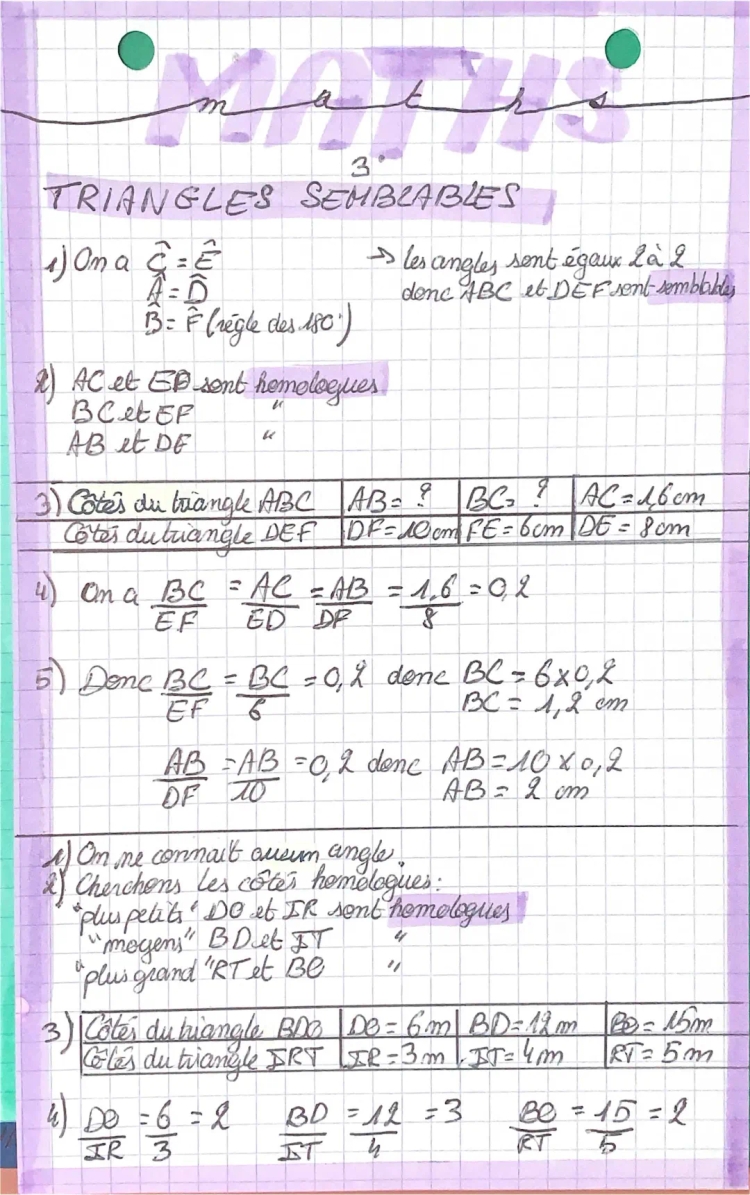 MATHS
maths
3°
TRIANGLES SEMBLABLES
1) On a Ĉ = Ê
Â = D̂
B̂ = F̂ (règle des 180°)
→ les angles sont égaux 2 à 2
donc ABC et DEF sont semblables
2) AC et ED sont homologues
BC et EF "
AB et DF "
3) Côtés du triangle ABC | AB = ? | BC = ? | AC = 1,6 cm
Côtés du triangle DEF | DF = 10 cm | FE = 6 cm | DE = 8 cm
4) On a BC/EF = AC/ED = AB/DF = 1,6/8 = 0,2
5) Donc BC/EF = BC/6 = 0,2 donc BC = 6 x 0,2
BC = 1,2 cm
AB/DF = AB/10 = 0,2 donc AB = 10 x 0,2
AB = 2 cm
1) On ne connait aucun angle.
2) Cherchons les côtés homologues :
"plus petits" DO et IR sont homologues
"moyens" BD et IT "
"plus grand" RT et BO "
3) Côtés du triangle BDO | DO = 6 m | BD = 12 m | BO = 15 m
Côtés du triangle IRT | IR = 3 m | IT = 4 m | RT = 5 m
4) DO/IR = 6/3 = 2 BD/IT = 12/4 = 3 BO/RT = 15/5 = 2